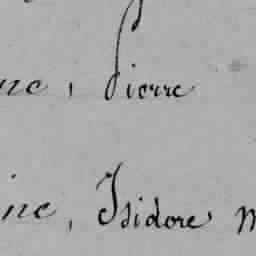 ne, Pierre
ine, Isidore